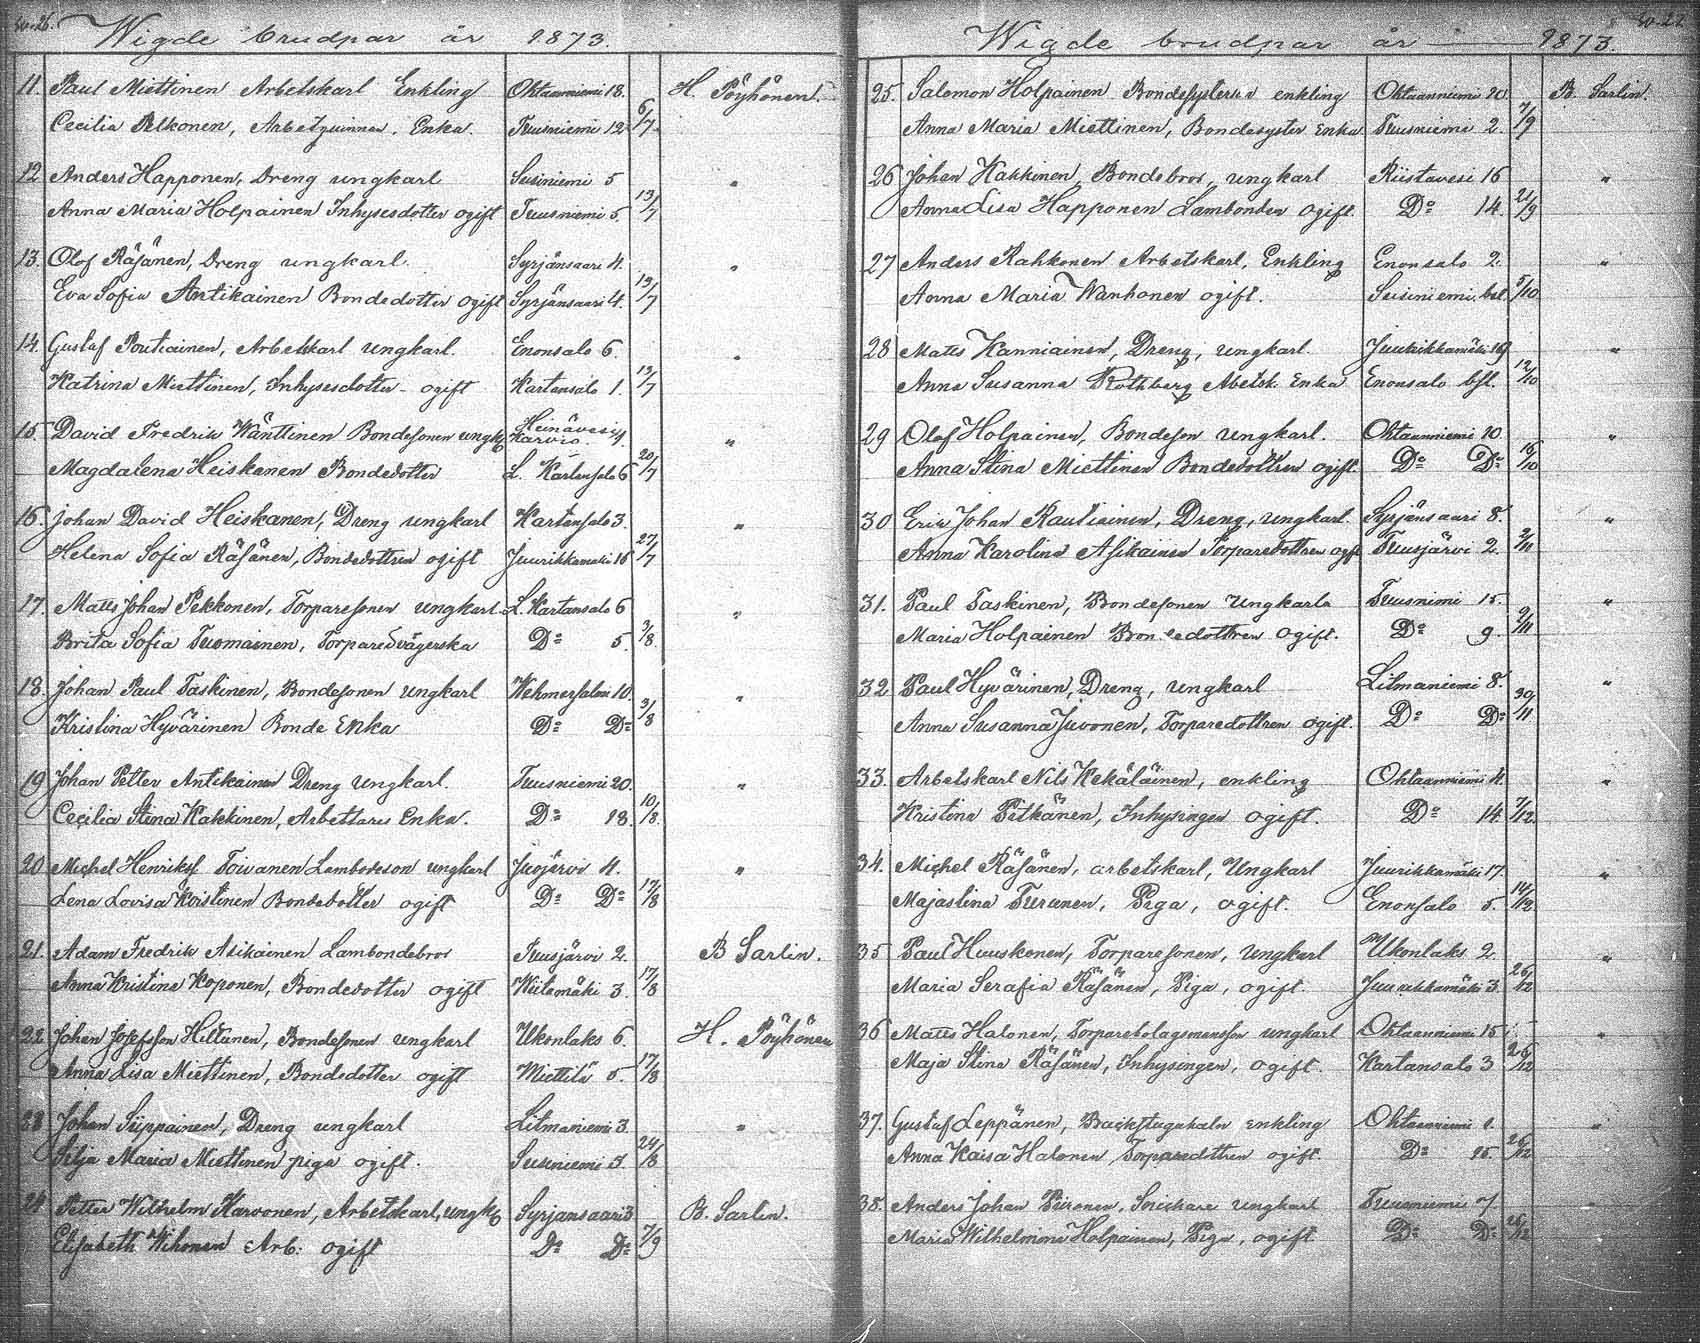 Wigde brudpar år 1873.
11. Paul Miettinen Arbetskarl Enkling Ohtaanniemi 18. H. Pöyhönen.
Cecilia Pelkonen, Arbetzquinnan. Enka. Tuusniemi 12 6/7
12 Anders Happonen, Dreng ungkarl Susiniemi 5 "
Anna Maria Holpainen Inhysesdotter ogift Tuusniemi 5. 13/7
13. Olof Räsänen, Dreng ungkarl. Syrjänsaari 4. "
Eva Sofia Antikainen Bondedotter ogift Syrjänsaari 4. 13/7
14. Gustaf Poutiainen, Arbetskarl ungkarl. Enonsalo 6. "
Katrina Miettinen, Inhysesdotter ogift Kartansalo 1. 13/7
15. David Fredrik Wänttinen Bondesonen ungk Heinävesi Karvio. 4. "
Magdalena Heiskanen Bondedotter L. Kartansalo 6 20/7
16. Johan David Heiskanen, Dreng ungkarl Kartansalo 3. "
Helena Sofia Räsänen, Bondedottren ogift Juurikkamäki 16 27/7
17. Matts Johan Pekkonen, Torparesonen ungkarl. L. Kartansalo 6 "
Brita Sofia Tuomainen, Torpared svägerska Do 5. 3/8.
18. Johan Paul Taskinen, Bondesonen ungkarl Wehmersalmi 10. "
Kristina Hyvärinen Bonde Enka Do Do 3/8
19 Johan Petter Antikainen Dreng ungkarl. Tuusniemi 20. "
Cecilia Stina Kakkinen, Arbettares Enka. Do 18. 10/8.
20. Michel Henriks Toivanen Lambodeson ungkarl Juojärvi 4. "
Lena Lovisa Koistinen Bondedotter ogift Do Do 17/8
21. Adam Fredrik Asikainen Lambondebror Tuusjärvi 2. B Sarlin.
Anna Kristina Koponen, Bondedotter ogift Wiitamäki 3. 17/8
22 Johan Josefsson Hiltunen, Bondesonen ungkarl Ukonlaks 6. H. Pöyhönen
Anna Lisa Miettinen, Bondedotter ogift Miettilä 5. 17/8
23 Johan Siippainen, Dreng ungkarl Litmaniemi 3. "
Silja Maria Miettinen piga ogift. Susiniemi 3. 24/8
24 Petter Wilhelm Karvonen, Arbetskarl, ungk Syrjansaari 3 B. Sarlin.
Elisabeth Wihonen Arb: ogift Do Do 7/9
Wigde brudpar år 1873.
25. Salomon Holpainen enkling Ohtaanniemi 20. B. Sarlin.
Anna Maria Miettinen, Bondesyster Enka Tuusniemi 2. 7/9
26 Johan Kakkinen, Bondebror, ungkarl Riistavesi 16 "
Anna Lisa Happonen Lambonden ogift. Do 14. 21/9
27 Anders Rahkonen Arbetskarl, Enkling Enonsalo 2. "
Anna Maria Wanhonen ogift. Susiniemi bsl. 5/10
28 Matts Kanniainen, Dreng, ungkarl. Juurikkamäki 19 "
Anna Susanna Rothberg Abetsk. Enka Enonsalo bsl. 12/10
29 Olof Holpainen, Bondeson ungkarl. Ohtaanniemi 10 "
Anna Stina Miettinen Bondedottren ogift. Do Do 16/10
30 Eric Johan Rautiainen, Dreng, ungkarl. Syrjänsaari 8. "
Anna Karolina Asikainen Torparedottren ogift Tuusjärvi 2. 2/11
31. Paul Taskinen, Bondesonen Ungkarla Tuusnimi 15. "
Maria Holpainen Bondedottren ogift. Do 9. 2/11
32 Paul Hyvärinen, Dreng, ungkarl Litmaniemi 8. "
Anna Susanna Juvonen, Torparedottren ogift. Do Do 30/11
33. Arbetskarl Nils Kekäläinen, enkling Ohtaanniemi 4. "
Kristina Pitkänen, Inhysingen ogift. Do 14. 7/12.
34. Michel Räsänen, arbetskarl, Ungkarl Juurikkamäki 17. "
Majastina Turunen, Piga, ogift. Enonsalo 5. 14/12.
35 Paul Huuskonen, Torparesonen, ungkarl Ukonlaks 2. "
Maria Serafia Räsänen, Piga, ogift. Juurikkamäki 3. 26/12
36 Matts Halonen, Torparebolagsmansson ungkarl Ohtaanniemi 15 "
Maja Stina Räsänen, Inhysingen, ogift. Kartansalo 3 26/12
37. Gustaf Leppänen, Backstugukarln Enkling Ohtaaniemi 1. "
Anna Kaisa Halonen, Torparedottren ogift. Do 15. 26/12
38. Anders Johan Piironen, Snickare ungkarl Tuusniemi 7
Maria Wilhelmina Holpainen, Piga, ogift. Do Do 26/12